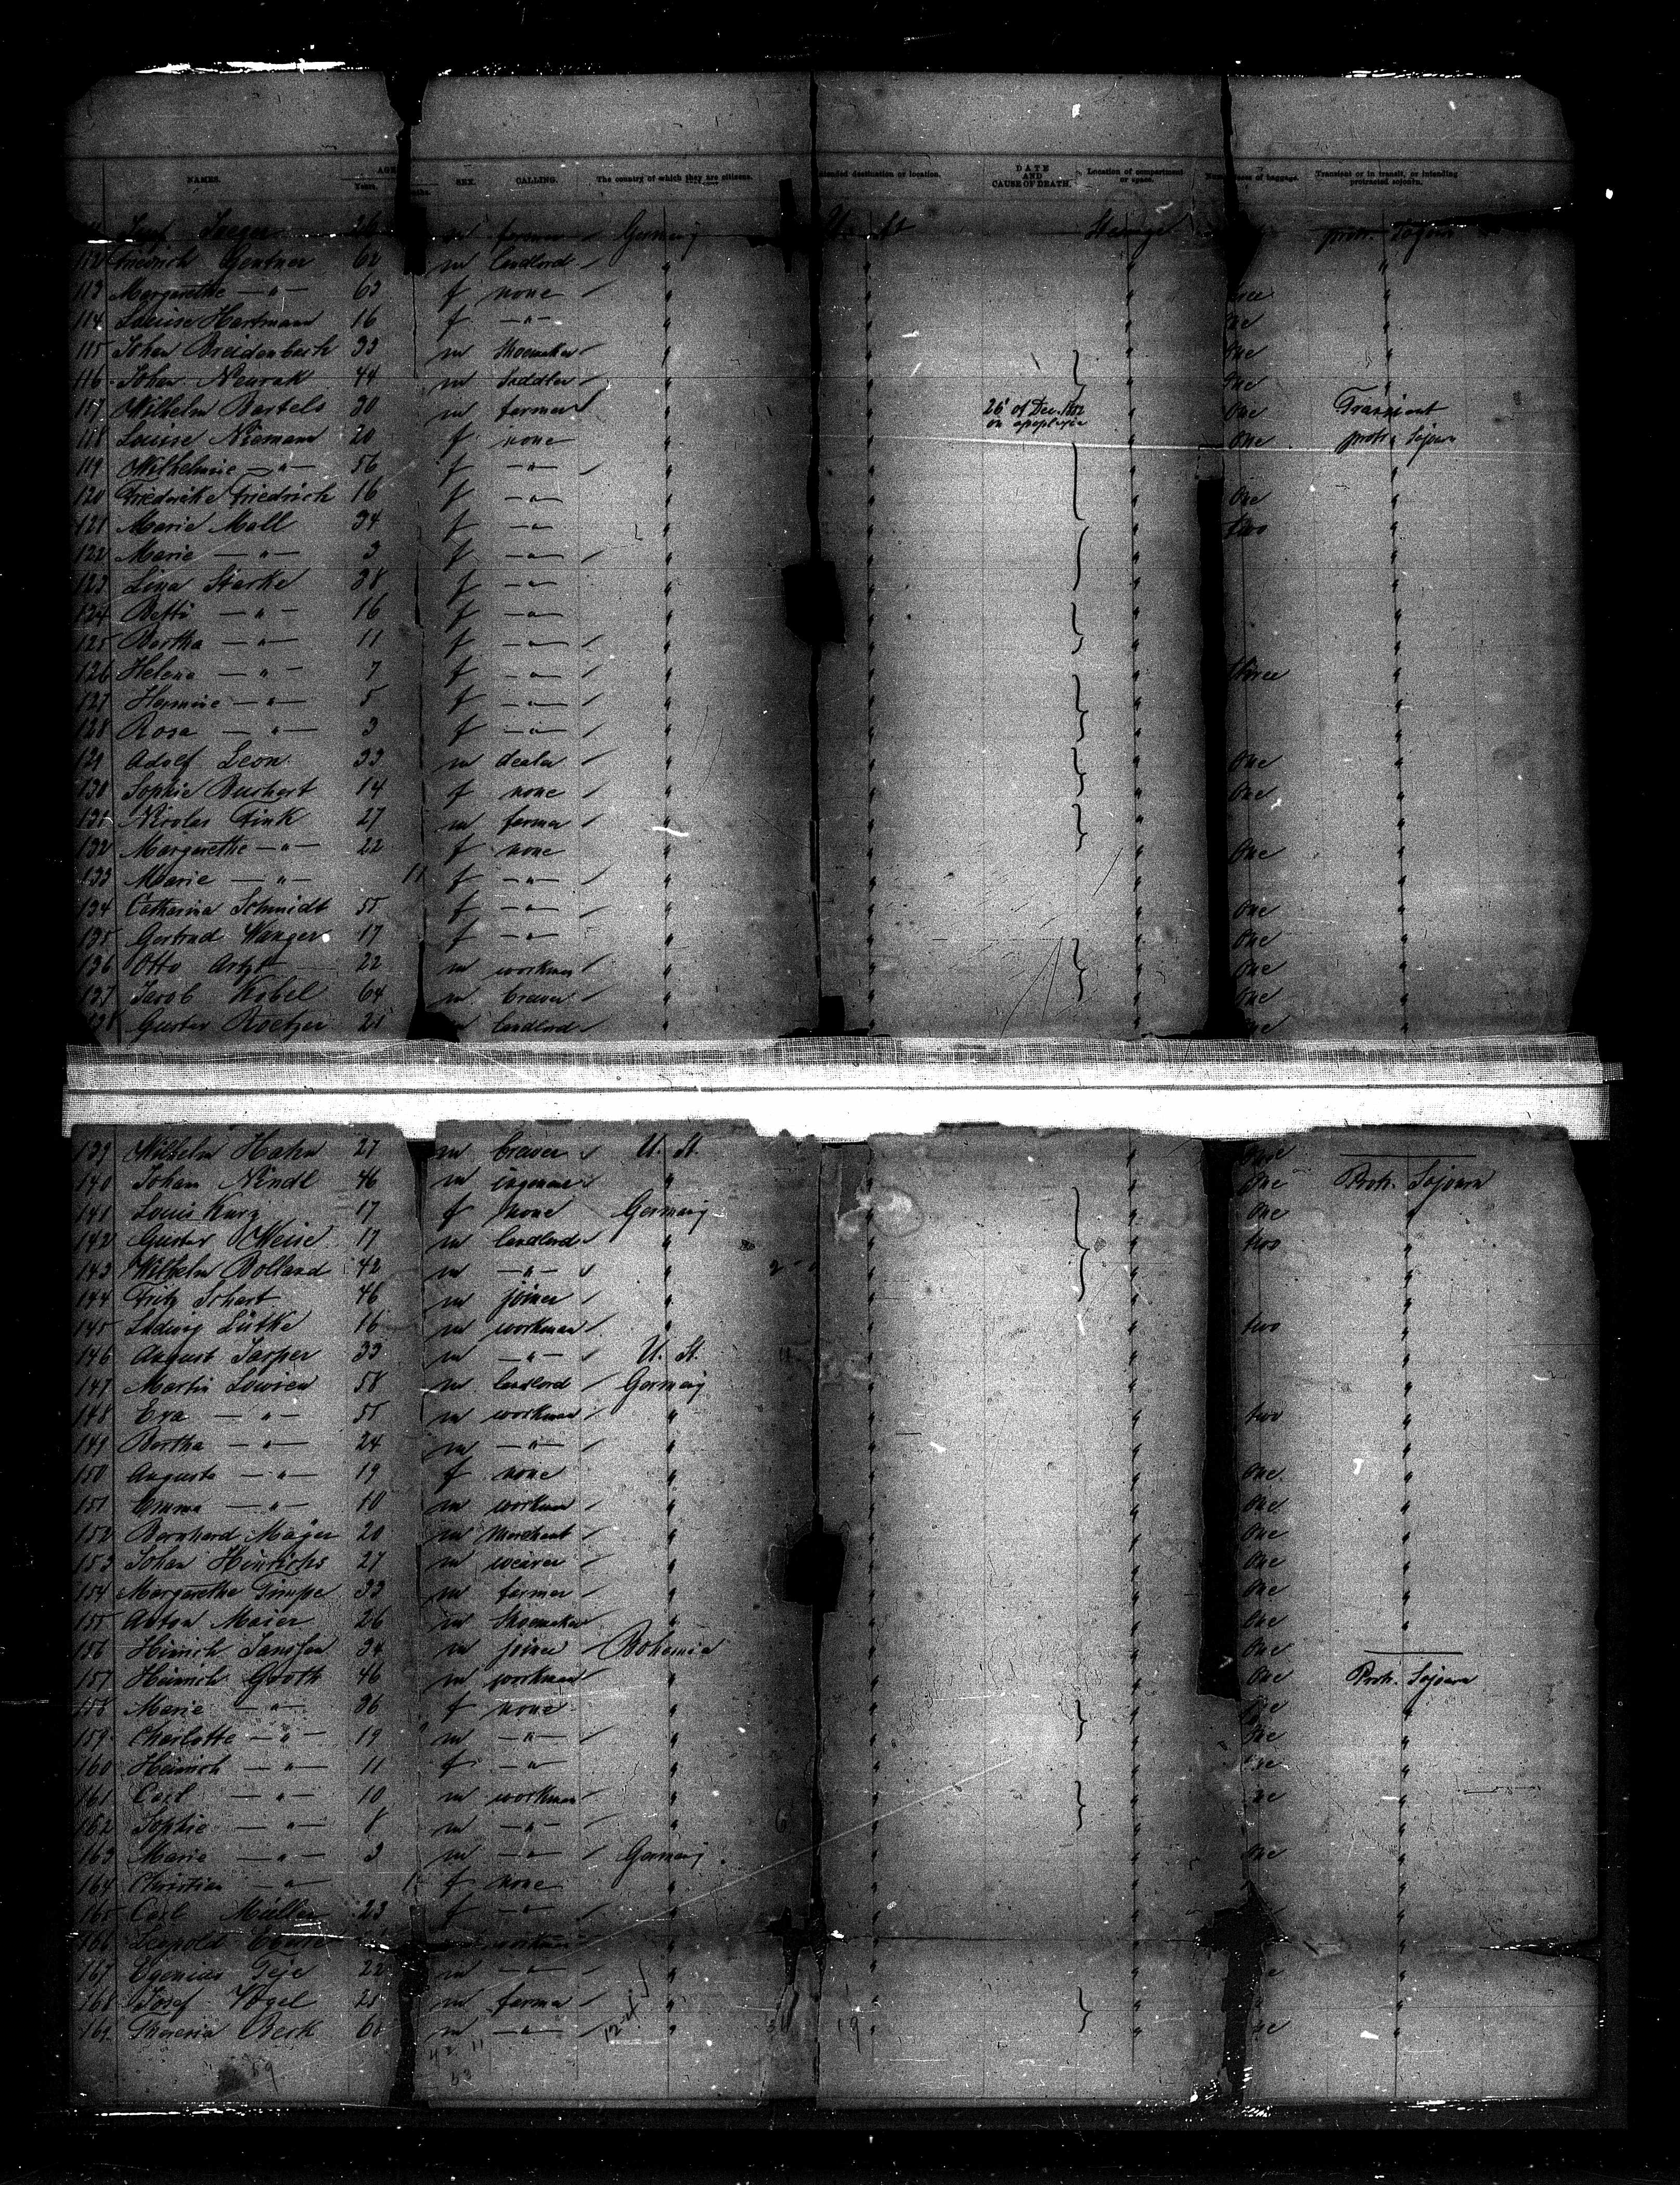 NAMES. AGE Years. SEX. CALLING. The country of which they are citizens. Intended destination or location. DATE AND CAUSE OF DEATH. Location of compartment or space. Number of pieces of baggage. Transient or in transit, or intending protracted sojourn.
Jaeger 26 m farmer Germany U. St. Steerage protr. Sojourn
112 Friedrich Gentner 62 m landlord " " " "
113 Margarethe —"— 63 f none " " " three "
114 Louise Hartmann 16 f —"— " " " One "
115 Johan Breidenbach 33 m Shoemaker " " " One "
116 Johan 44 m Saddler " " " One "
117 Wilhelm Bartels 30 m farmer " " 26' of Dec. 1882 on apoplexia " One Transient
118 Louise Niemann 20 f none " " " One protr. Sojourn
119 Wilhelmine —"— 56 f —"— " " " "
120 Friederike Friedrich 16 f —"— " " " One "
121 Marie Moll 34 f —"— " " " two "
122 Marie —"— 3 f —"— " " " "
123 Lina Starke 38 f —"— " " " "
124 Betti —"— 16 f —"— " " " "
125 Bertha —"— 11 f —"— " " " "
126 Helena —"— 7 f —"— " " " three "
127 Hermine —"— 5 f —"— " " " "
128 Rosa —"— 3 f —"— " " " "
129 Adolf Leon 33 m dealer " " " One "
130 Sophie Buchert 14 f none " " " One "
131 Nicolas Fink 27 m farmer " " " "
132 Margarethe —"— 22 f none " " " One "
133 Marie —"— 11 f —"— " " " "
134 Catharina Schmidt 55 f —"— " " " One "
135 Gertrud Wanger 17 f —"— " " " One "
136 Otto Artzt 22 m workman " " " One "
137 Jacob Kobel 64 m brewer " " " One "
138 Gustav Roetzer 25 m landlord " " " One "
139 Wilhelm Hahn 27 m brewer U. St. " " One ———
140 Johan Nendl 46 m " " " One Protr. Sojourn
141 Louis Kurz 17 f none Germany " " One "
142 Gustav Weise 17 m landlord " " " two "
143 Wilhelm Bolland 42 m —"— " " " "
144 Fritz Schart 46 m joiner " " " "
145 Ludwig Lütke 16 m workman " " " two "
146 August Jasper 33 m —"— U. St. " " "
147 Martin Lowien 58 m landlord Germany " " "
148 Eva —"— 55 m workman " " " two "
149 Bertha —"— 24 m —"— " " " "
150 Auguste —"— 19 f none " " " One "
151 Emma —"— 10 m workman " " " One "
152 Bernhard Mayer 20 m Merchant " " " One "
153 Johan Hinrichs 27 m weaver " " " One "
154 Margarethe Gimpe 33 m farmer " " " One "
155 Anton Maier 26 m Shoemaker " " " One "
156 Hinrich Janssen 34 m joiner Bohemia " " One ———
157 Heinrich Groth 46 m workman " " " One Protr. Sojourn
158 Marie —"— 36 f none " " " One "
159 Charlotte —"— 19 m —"— " " " One "
160 Heinrich —"— 11 f —"— " " " One "
161 Carl —"— 10 m workman " " " One "
162 Sophie —"— 8 m —"— " " " "
163 Marie —"— 3 m —"— Germany " " One "
164 Christian —"— f none " " " "
165 Carl Müller 23 f —"— " " " "
166 Leopold workman " " " "
167 22 m —"— " " " "
168 Josef Vogel 25 m farmer " " " "
169 Theresia Berk m —"— " " " "